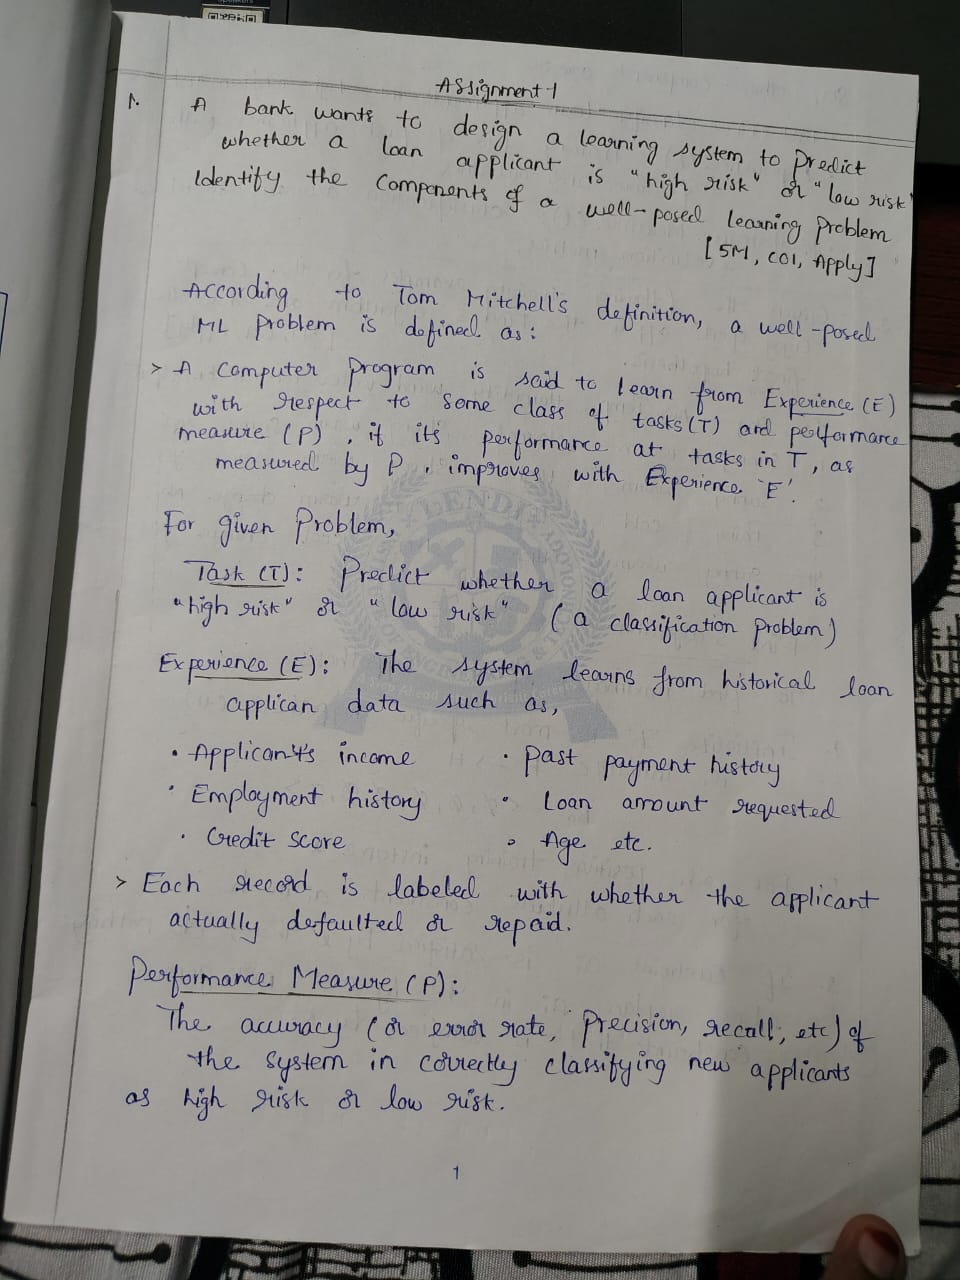 Assignment-1
1. A bank wants to design a learning system to predict
whether a loan applicant is "high risk" or "low risk"
Identify the Components of a well-posed learning problem
[5M, CO1, Apply]
According to Tom Mitchell's definition, a well-posed
ML problem is defined as:
> A Computer program is said to learn from Experience (E)
with respect to some class of tasks (T) and performance
measure (P), if its performance at tasks in T, as
measured by P, improves with Experience 'E'.
For given Problem,
Task (T): Predict whether a loan applicant is
"high risk" or "low risk" (a classification problem)
Experience (E): The system learns from historical loan
applican data such as,
• Applicant's income • Past payment history
• Employment history • Loan amount requested
• Credit score • Age etc.
> Each record is labeled with whether the applicant
actually defaulted or repaid.
Performance Measure (P):
The accuracy (or error rate, Precision, recall, etc) of
the system in correctly classifying new applicants
as high risk or low risk.
1
LENDI